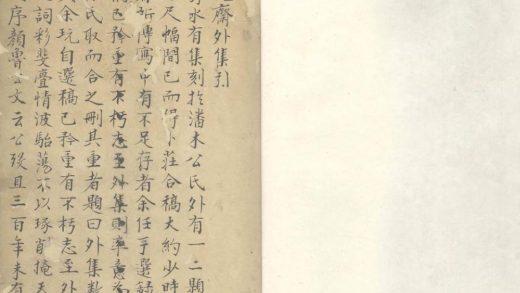 齋外集引
水有集刻於潘木公氏外有一二題
尺幅間已而得小莊合稿大約少時
所傳寫中有不足存者余任手選録
已矜重有不朽志至外集則率意為
氏取而合之刪其重者題曰外集數
余玩自選稿已矜重有不朽志至外
詞彩斐亹情波駘蕩不以琢削掩天
序顏魯公文云公歿且三百年未有